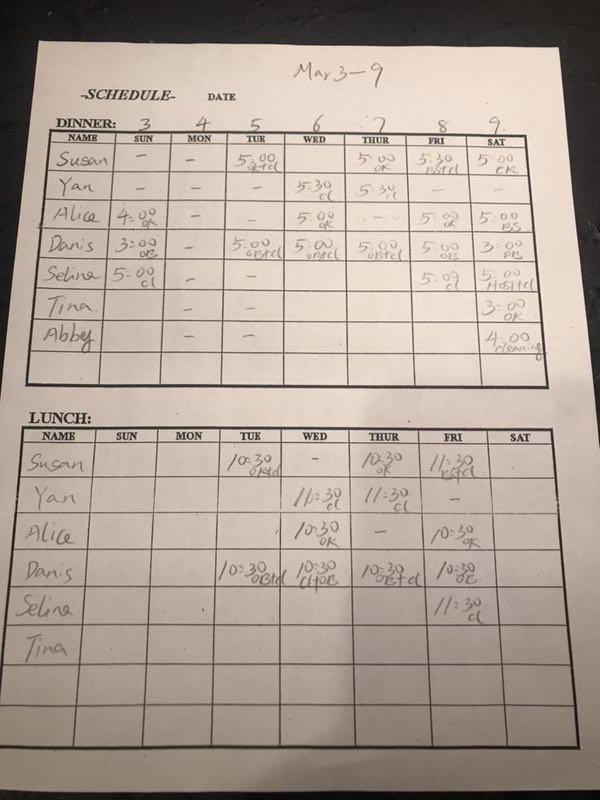 Mar 3-9
-SCHEDULE- DATE
DINNER: 3 4 5 6 7 8 9
NAME SUN MON TUE WED THUR FRI SAT
Susan - - 5:00 5:00 5:30 5:00
OK
Yan - - - 5:30 5:30 - -
cl cl
Alice 4:00 - - 5:00 5:00 5:00
OK OK OK BS
Danis 3:00 - 5:00 5:00 5:00 5:00 3:00
OB OB+cl OB+cl OB+cl OB
Selina 5:00 - - 5:00 5:00
cl cl
Tina - - 3:00
OK
Abbey - - 4:00
cleaning
LUNCH:
NAME SUN MON TUE WED THUR FRI SAT
Susan 10:30 - 10:30 11:30
OK
Yan 11:30 11:30 -
cl cl
Alice 10:30 - 10:30
OK OK
Danis 10:30 10:30 10:30 10:30
OB+cl cl+OB OB+cl OB
Selina 11:30
cl
Tina